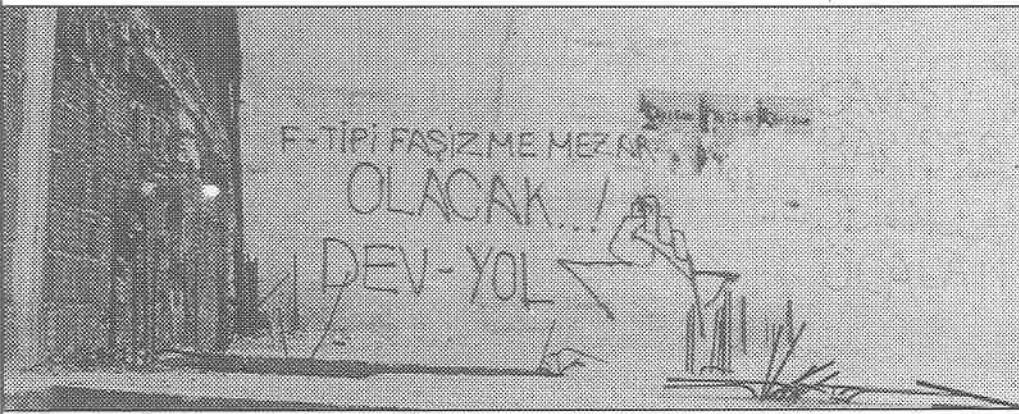 F-TİPİ FAŞİZME MEZAR
OLACAK...!
DEV-YOL